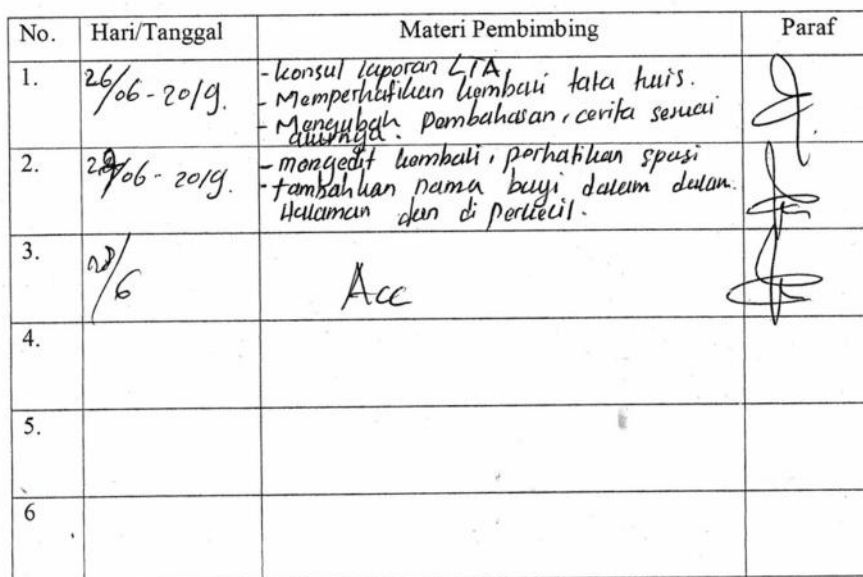 No. Hari/Tanggal Materi Pembimbing Paraf
1. 26/06-2019. - konsul laporan LTA.
- Memperhatikan kembali tata tulis.
- Mengubah Pembahasan, cerita sesuai
alurnya.
2. /06-2019. - mengedit kembali, perhatikan spasi
- tambahkan nama bayi dalam
Halaman dan di perkecil.
3. /6 Acc
4.
5.
6